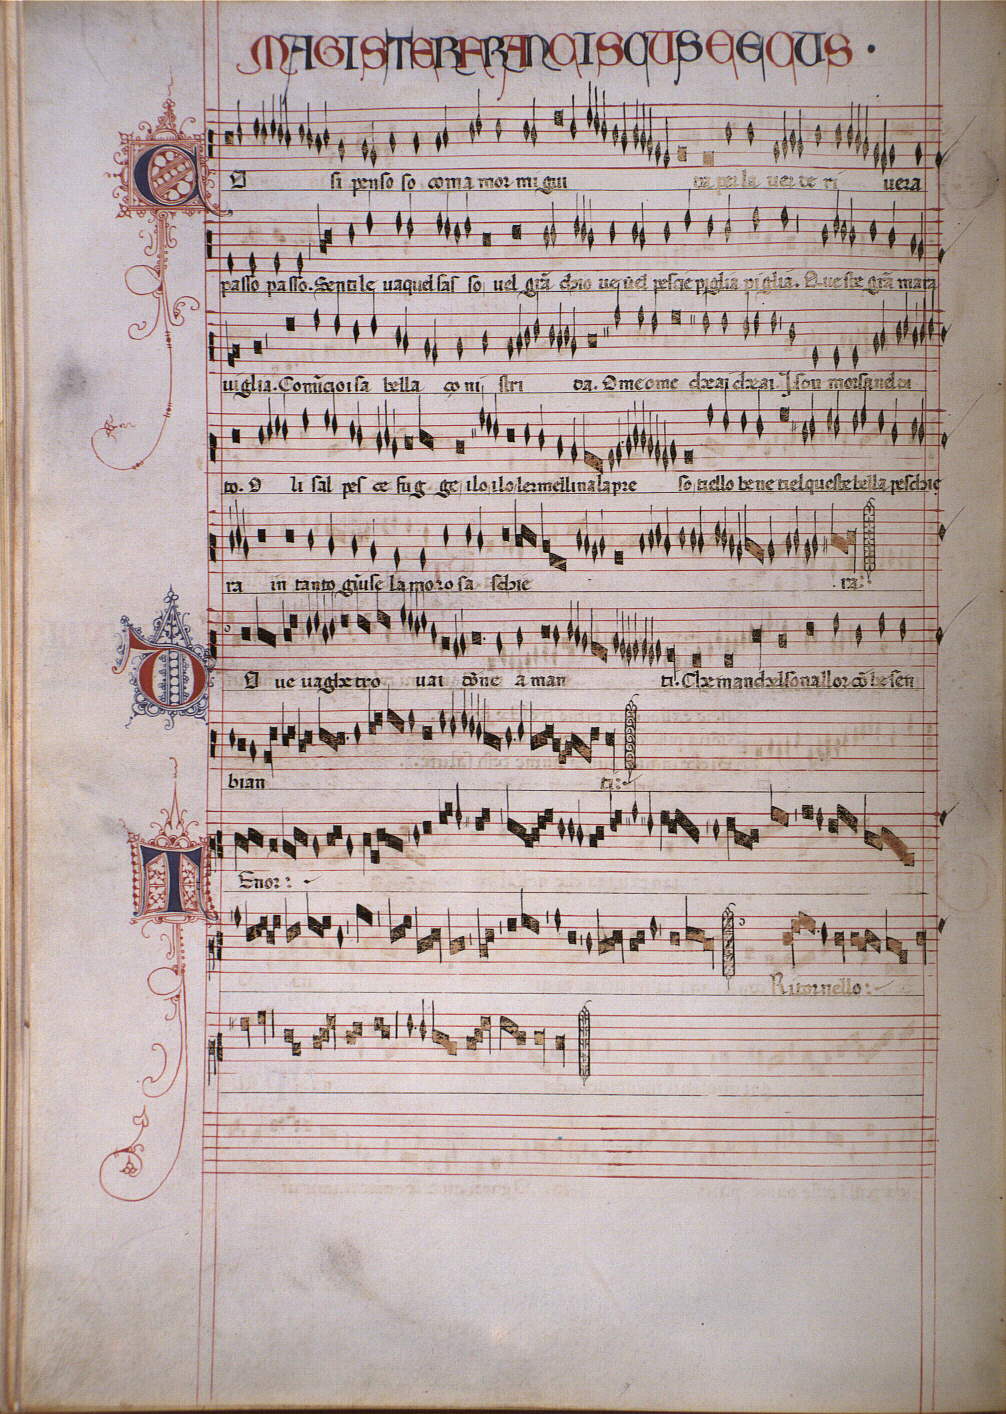 MAGISTER FRANCISCUS CECUS ·
Cosi penso so com amor mi gui da per la verde ri vera
passo passo. Senti leva quel sas so vel grã chio ve vel pescie piglia piglia. Queste grã mara
viglia. Comĩcio isa bella co ni stri da. Ome ome che ai che ai. I son morsa nel di
to. O li sal pes ce fug ge ilo ilo lermellina la pre so tiello bene tiel queste bella peschie
ra in tanto giũse lamoro sa schie ra:
Ove vaghe tro vai dõne aman ti. Che mandxelsonallor cõ be sen
bian ti:
Tenor:
Ritornello: